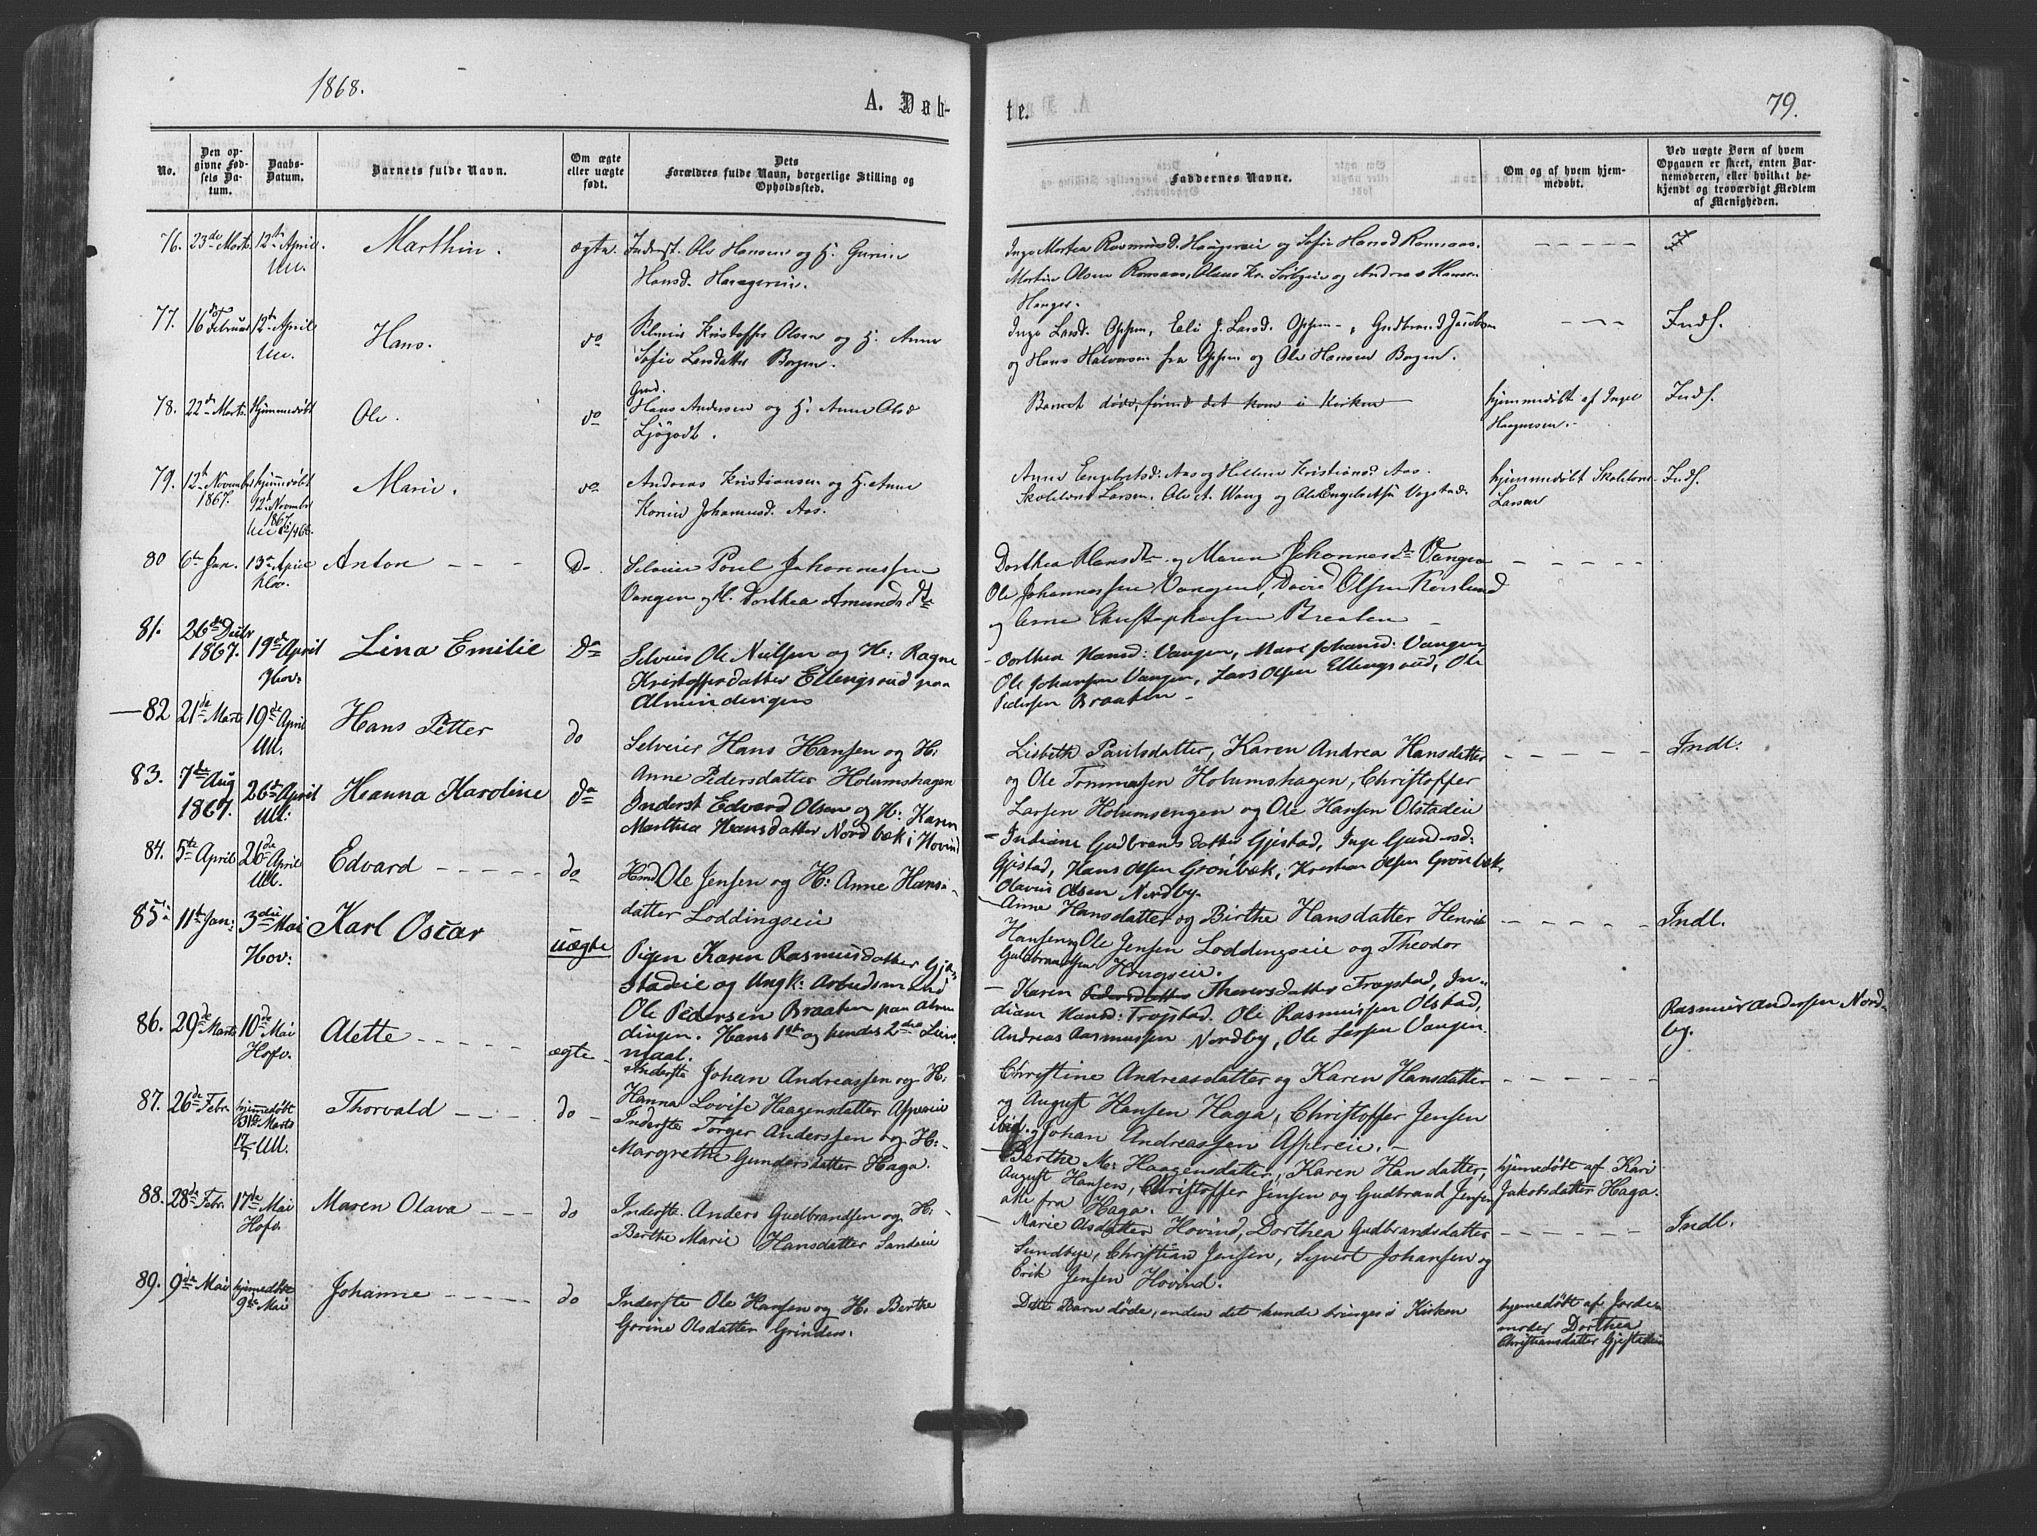 1868.
A. Døb-
te.
79.
No.
Den op-
givne Fød-
sels Da-
tum.
Daabs-
Datum.
Barnets fulde Navn.
Om ægte
eller uægte
født.
Dets
Forældres fulde Navn, borgerlige Stilling og
Opholdssted.
Faddernes Navne.
Om og af hvem hjem-
medøbt.
Ved uægte Børn af hvem
Opgaven er skeet, enten Bar-
nemoderen, eller hvilket be-
kjendt og troværdigt Medlem
af Menigheden.
76. 23de Marts 12te April Ull. Marthin. ægte.
Inderst. Ole Hansen og H. Gurine
Hansd.
Inge Martea Rasmusd. og Sofie Hansd Romsaas.
Martin Olsen Romsaas, og Andreas Hansen
Hanger.
77. 16de Februar 12te April Ull. Hans. do
Kristoffer Olsen og H. Anne
Sofie Larsdatter Borgen.
Inge Larsd. Oppen, Eli J. Larsd. Oppen, Gudbrand Jacobsen
og Hans Halvorsen fra Oppen og Ole Hansen Borgen.
Indf.
78. 22de Marts Hjemmedøbt Ole. do
Grd.
Hans Andersen og H. Anne Olsd
Ljøgodt.
Barnet døde, førend det kom i Kirken
hjemmedøbt af Inger
Haagensen.
Indf.
79. 12te Novembr 1867. hjemmedøbt
12te Novembr
1867
Marie. do
Andreas Kristiansen og H. Anne
Karine Johannesd. Aas.
Anne Engebretsd. Aas og Helene Kristiansd Aas.
Larsen, Ole A. Wang og Ole
hjemmedøbt
Larsen
Indf.
80 6te Jan. 13de April Anton Do.
Selveier Poul Johannessen
Vangen og H. Dorthea Amundsdtr
Dorthea Hansdtr og Maren Johannesdtr Vangen
Ole Johannessen Vangen, David Olsen
og Arne Christophersen Braaten
81. 26de Decbr
1867. 19de April
Hov: Lina Emilie Do
Selveier Ole Nielsen og H: Ragne
Kristoffersdatter Ellingsrud paa
Almindingen
Dorthea Hansd: Vangen, Mari Johansd: Vangen,
Ole Johansen Vangen, Lars Olsen Ellingsrud, Ole
Pedersen Braaten
82 21de Marts 19de April
Ull. Hans Petter do
Selveier Hans Hansen og H:
Anne Pedersdatter Holumshagen
Lisbeth Paulsdatter, Karen Andrea Hansdatter
og Ole Tommassen Holumshagen, Christoffer
Larsen Holumsengen og Ole Hansen Olstadeie
Indl.
83. 7de Aug
1867. 26de April
Ull: Hanna Karoline do
Inderst Edvard Olsen og H: Karen
Marthea Hansdatter Nordbæk i Hovind
Indiane Gudbrandsdatter Gjestad, Inge Gundersd:
Gjestad, Hans Olsen Grønbæk, Kristian Olsen Grønbæk,
Olavus Olsen Nordby.
84. 5te April 26de April
Ull. Edvard do
Hmd Ole Jensen og H: Anne Hans-
datter Loddingseie
Anne Hansdatter og Birthe Hansdatter Henrik
Hansen og Ole Jensen Loddingseie og Theodor
Gulbrandsen Haugseie.
Indl.
85. 11te Jan: 3die Mai
Hov: Karl Oscar uægte
Pigen Karen Rasmusdatter Gje-
stadeie og Ungk: Arbeidsmand
Ole Pedersen Braaten paa Almin-
dingen. Hans 1ste og hendes 2det Leier-
maal.
Karen Pedersdatter Thorersdatter Trogstad, In-
diane Hansd: Trogstad, Ole Rasmussen Olstad,
Andreas Rasmussen Nordby, Ole Larsen Vangen.
Rasmus Andersen Nord-
by.
86. 29de Marts 10de Mai
Hofv. Alette ægte
Inderste Johan Andreassen og H:
Hanna Lovise Haagensdatter Aspereie
Christine Andreasdatter og Karen Hansdatter
og August Hansen Haga, Christoffer Jensen
ibid. og Johan Andreassen Aspereie.
87. 26de Febr. hjemmedøbt
31te Marts
17/5 Ull. Thorvald do
Inderste Torger Anderssen og H:
Margrethe Gundersdatter Haga.
Berthe M: Haagensdatter, Karen Hansdatter,
August Hansen, Christoffer Jensen og Gudbrand Jensen
alle fra Haga.
hjemmedøbt af Kari
Jakobsdatter Haga.
88. 28de Febr. 17de Mai
Hofv. Maren Olava do
Inderste Anders Gudbrandsen og H:
Berthe Marie Hansdatter Sandeie
Marie Olsdatter Hovind, Dorthea Gudbrandsdatter
Sundbye, Christian Jensen, Syvert Johansen og
Erik Jensen Hovind.
Indl.
89. 9de Mai hjemmedøbt
9de Mai Johanne do
Inderste Ole Hansen og H: Berthe
Gorine Olsdatter Grinder.
Dette Barn døde, enden det kunde bringes i Kirken
hjemmedøbt af Jorde-
moder Dorthea
Christiansdatter Gjestadeie